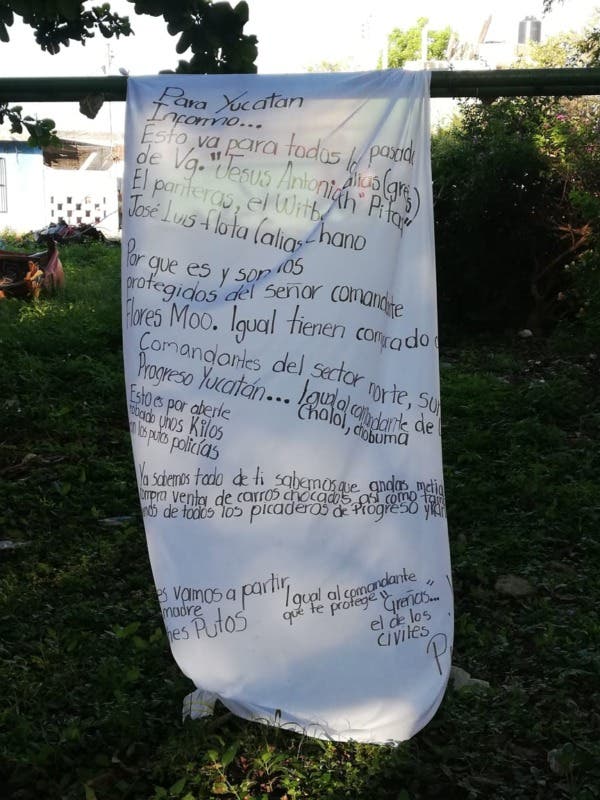 Para Yucatan
Informo...
Esto va para todos lo pasad
de Vg. "Jesus Antonio alias (greñas)
El panteras, el With "Pitar"
José Luis flota (alias Chano
Por que es y son los
protegidos del señor comandante
Flores Moo. Igual tienen comprado a
Comandantes del sector norte, sur
Progreso Yucatán... Igual al comandante de
Chalol, chobuma
Esto es por aberle
robado unos Kilos
los putos policías
Ya sabemos todo de ti sabemos que andas meti
compra venta de carros chocados, así como
de todos los picaderos de Progreso y
es vamos a partir
madre
nes Putos
Igual al comandante
que te protege "Greñas..."
el de los
civiles
P